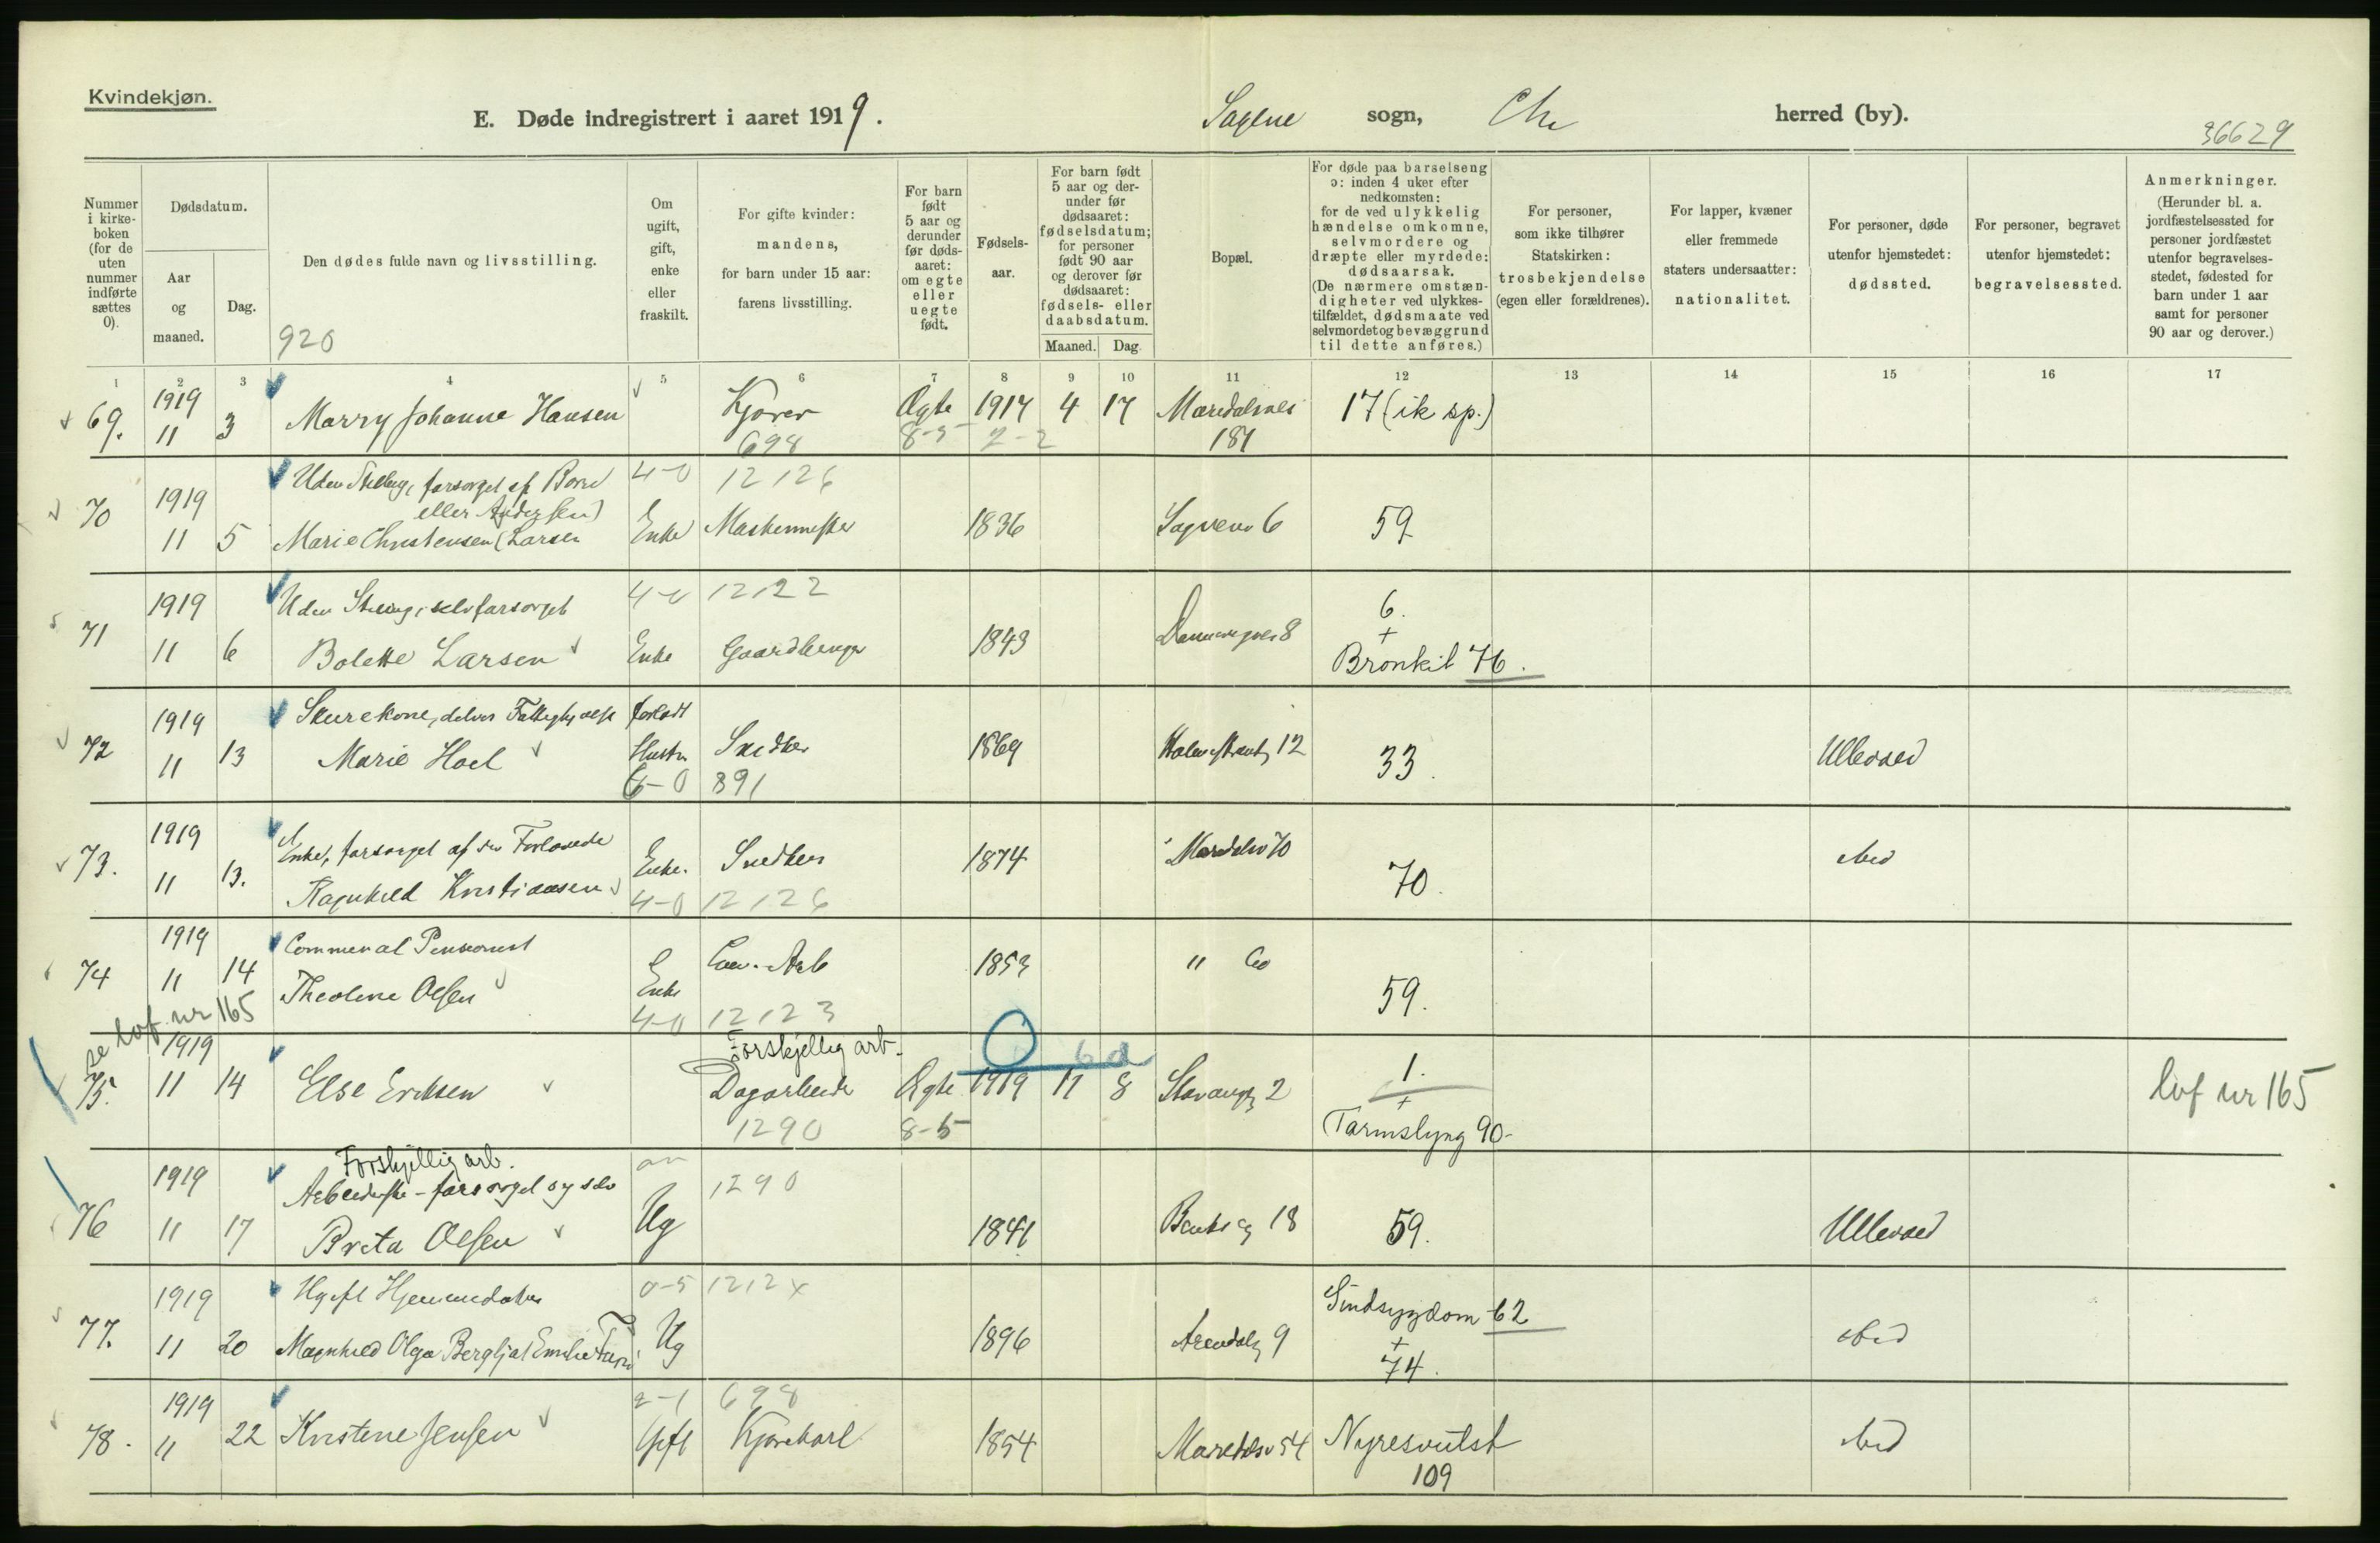 Kvindekjøn.
E. Døde indregistrert i aaret 1919.
Sagene sogn, Chr herred (by).
36629
Nummer i kirke-boken (for de uten nummer indførte sættes 0).
Dødsdatum.
Aar og maaned.
Dag.
Den dødes fulde navn og livsstilling.
920
Om ugift, gift, enke eller fraskilt.
For gifte kvinder: mandens, for barn under 15 aar: farens livsstilling.
For barn født 5 aar og derunder før døds-aaret: om egte eller uegte født.
Fødsels-aar.
For barn født 5 aar og der-under før dødsaaret: fødselsdatum; for personer født 90 aar og derover før dødsaaret: fødsels- eller daabsdatum.
Maaned. Dag.
Bopæl.
For døde paa barselseng ɔ: inden 4 uker efter nedkomsten: for de ved ulykkelig hændelse omkomne, selvmordere og dræpte eller myrdede: dødsaarsak. (De nærmere omstæn-digheter ved ulykkes-tilfældet, dødsmaate ved selvmordet og bevæggrund til dette anføres.)
For personer, som ikke tilhører Statskirken: trosbekjendelse (egen eller forældrenes).
For lapper, kvæner eller fremmede staters undersaatter: nationalitet.
For personer, døde utenfor hjemstedet: dødssted.
For personer, begravet utenfor hjemstedet: begravelsessted.
Anmerkninger. (Herunder bl. a. jordfæstelsessted for personer jordfæstet utenfor begravelses-stedet, fødested for barn under 1 aar samt for personer 90 aar og derover.)
1 2 3 4 5 6 7 8 9 10 11 12 13 14 15 16 17
69. 1919 11 3 Marry Johanne Hansen Kjører Ægte 1917 4 17 Maridalsvei 17 (ik sp.)
698 8-5 2-2 181
70 1919 11 5 forsørget af
eller Andersen)
Marie Christensen (Larsen
4-0 12126
Enke 1836 6 59
71 1919 11 6 selvforsørget
Bolette Larsen
4-0 12122
Enke 1843 8 6.
+
Bronkit 76.
72 1919 11 13 Skurekone,
Marie Hoel
forladt
Hustru Snedker 1869 12 33. Ullevaal
6-0 891
73. 1919 11 13. Enke, forsørget af
Ragnhild Kristiansen
Enke. Snedker 1874 70 70. ibid
4-0 12126
74 1919 11 14 Communal Pensionist
Theoline Olsen
Enke Arb 1853 " 60 59.
4-0 12123
se lof nr 165
75. 1919 11 14 Else Eriksen
Forskjellig arb.
Dagarbeider Ægte 1919 11 8 Stavangg 2 1.
6 d
+
Tarmslyng 90-
1290 8-5
lof nr 165
76 1919 11 17 Forskjellig arb.
Arbeiderske - forsørget sig selv
Brita Olsen
1290
Ug 1841 18 59. Ullevaal
77. 1919 11 20 Ugift
Magnhild Olga Bergljot Emilie
0-5 1212x
Ug 1896 Arendalg 9 Sindsygdom 62
+
74.
ibid
78. 1919 11 22 Kristine Jensen
2-1 698
Gift Kjørekarl 1854 Maridalsv 54 Nyresvulst
109
ibid